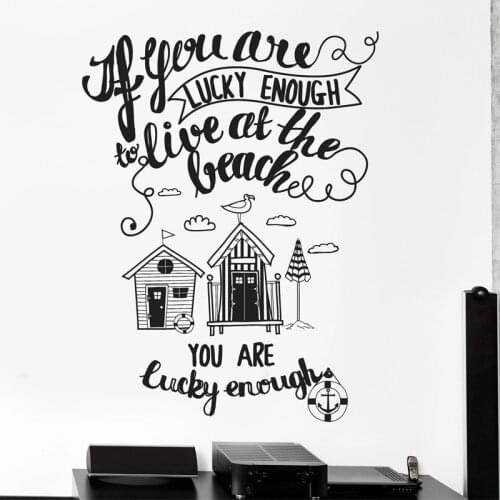 If you are
LUCKY ENOUGH
to live at the
beach
YOU ARE
lucky enough